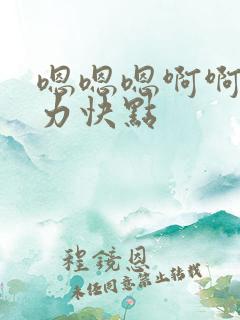 嗯嗯嗯啊啊
力快點
程鏡恩
未任同意禁止转载